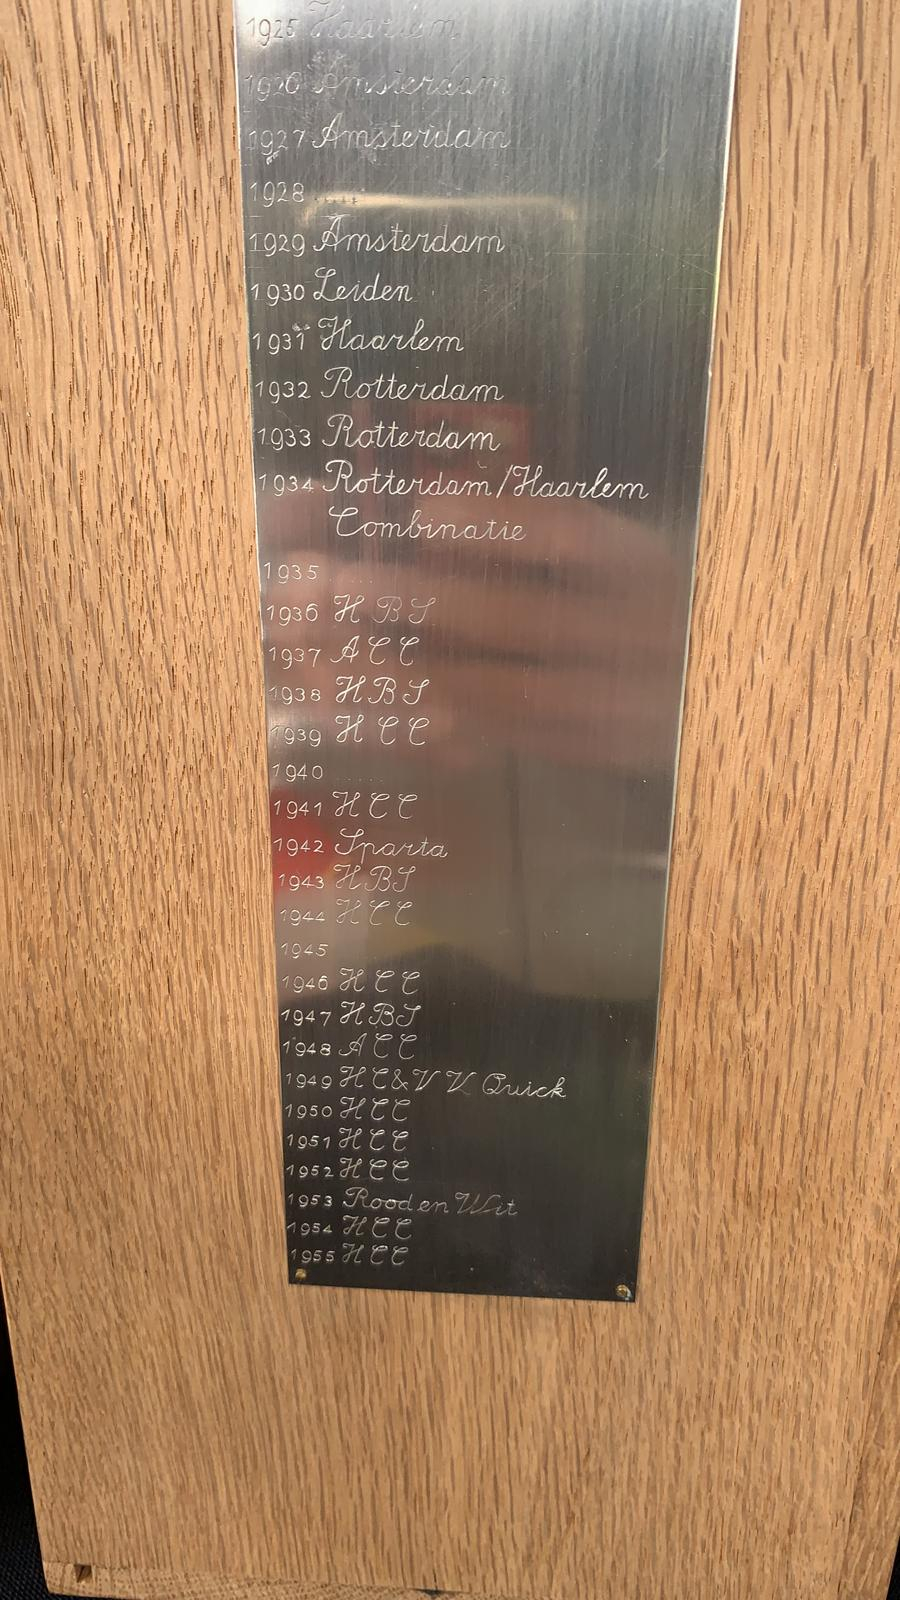 1925 Haarlem
1926 Amsterdam
1927 Amsterdam
1928 .....
1929 Amsterdam
1930 Leiden
1931 Haarlem
1932 Rotterdam
1933 Rotterdam
1934 Rotterdam/Haarlem
Combinatie
1935 .....
1936 H B S
1937 A C C
1938 H B S
1939 H C C
1940 .....
1941 H C C
1942 Sparta
1943 H B S
1944 H C C
1945
1946 H C C
1947 H B S
1948 A C C
1949 H C & V V Quick
1950 H C C
1951 H C C
1952 H C C
1953 Rood en Wit
1954 H C C
1955 H C C